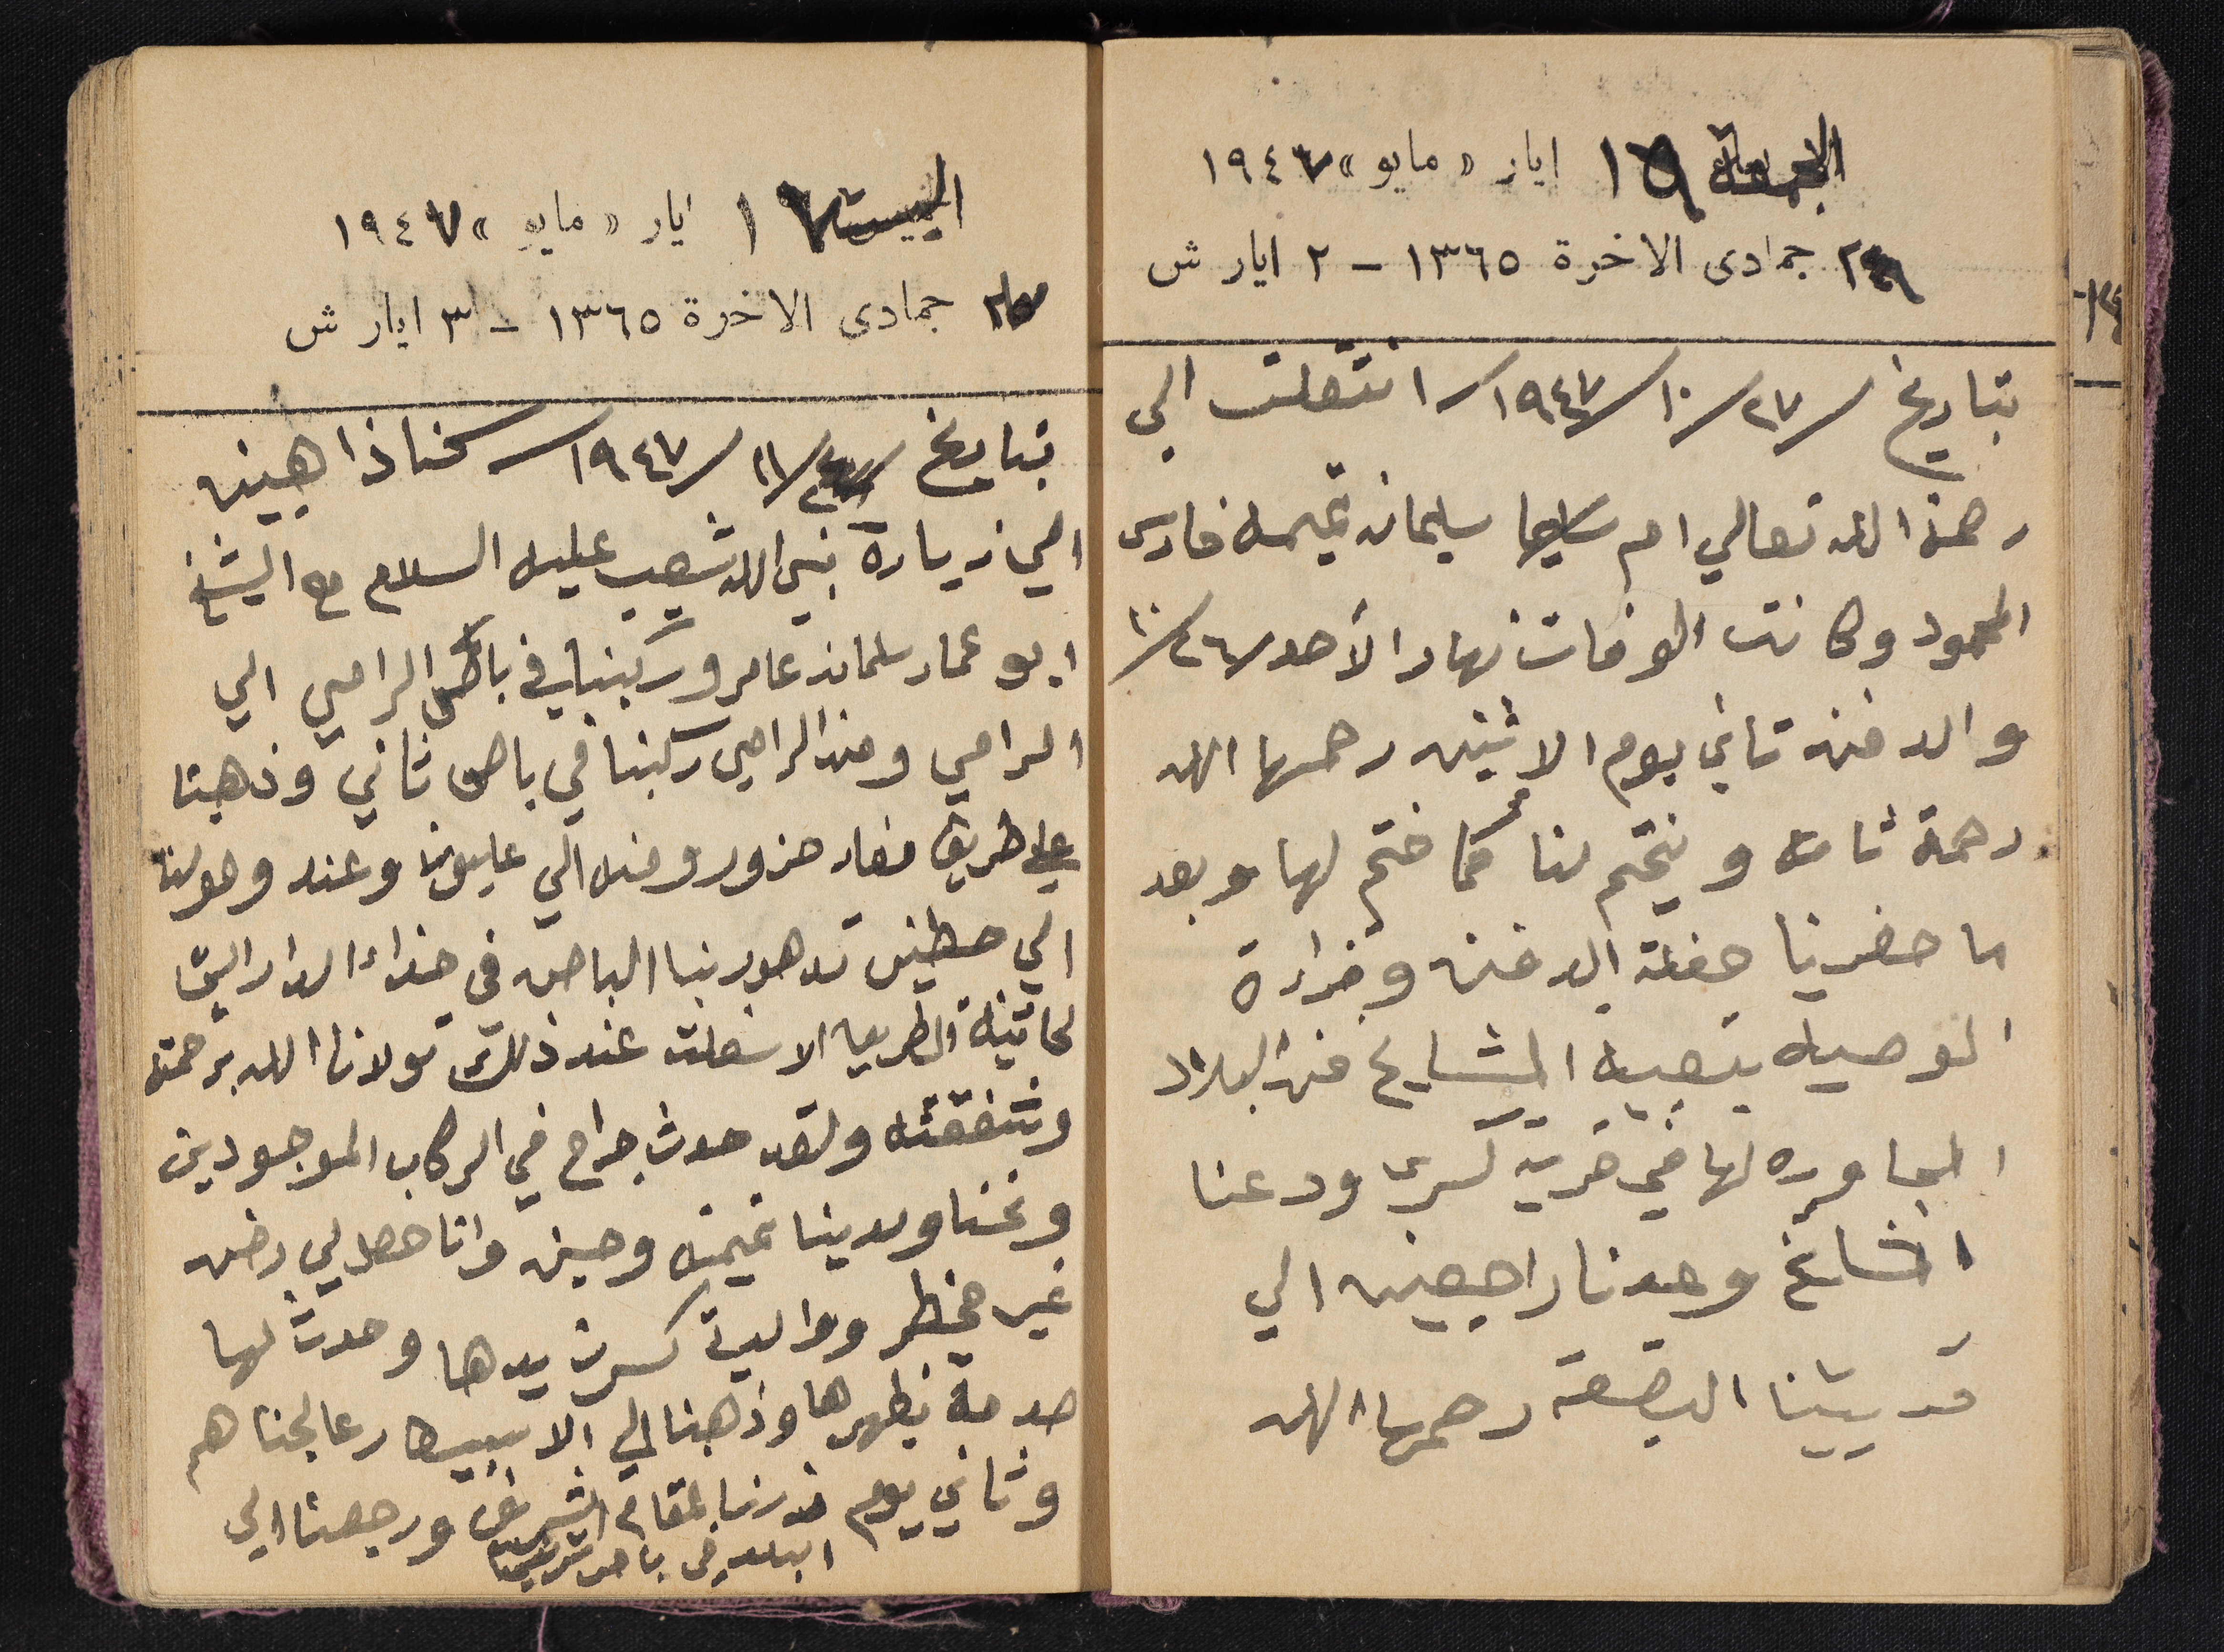 ايار « مايو » ١٩٤٧
جمادى الاخرة ١٣٦٥ - ٢ ايار ش
بتاريخ / ٢٧/ ١٠/ ١٩٤٧/ انتقلت الي
رحمة الله تعالي ام سليمان تميمه فارس
المحمود وكانت الوفات نهار الأحد ٢٦/ ١٠/
والدفن تاني يوم الاثنين رحمها الله
رحمة تامه ويختم لنا كما ختم لها وبعد
ما حضرنا حفلة الدفن وقراءة
التوصيه بتعيية المشايخ من البلاد
المجاوره لها في قرية كسرى ودعنا
المشايخ وعدنا راجعين الي
قريتنا البقيعة رحمها الله
ايار « مايو » ١٩٤٧
جمادى الاخرة ١٣٦٥ - ٣ ايار ش
بتاريخ / ١١/ ١٩٤٧/ كنا ذاهبين
الي زيارة نبي الله شعيب عليه السلام مع الشيخ
ابو عمار سلمان عامر وركبنا في باص الرامي الي
الرامي ومن الرامي ركبنا في باص ثاني وذهبنا
علي طريق مغار حزور ومنه الي عيلبون وعند وصولنا
الي حطين تدهور بنا الباص في
الطريق الاسفلت عند ذلك تولانا الله برحمته
وشفقته ولقد حدث جراح في الركاب الموجودين
ونحنا ولدينا تميمه وحسن وانا حصل لي رض
غير مخطر ووالدتي كسرت يدها وحدث لها
صدمة بظهرها وذهبنا الي الاسبيطار عالجناهم
وثاني يوم زرنا المقام الشريف ورجعنا الي
البلد في باص ترشيحا